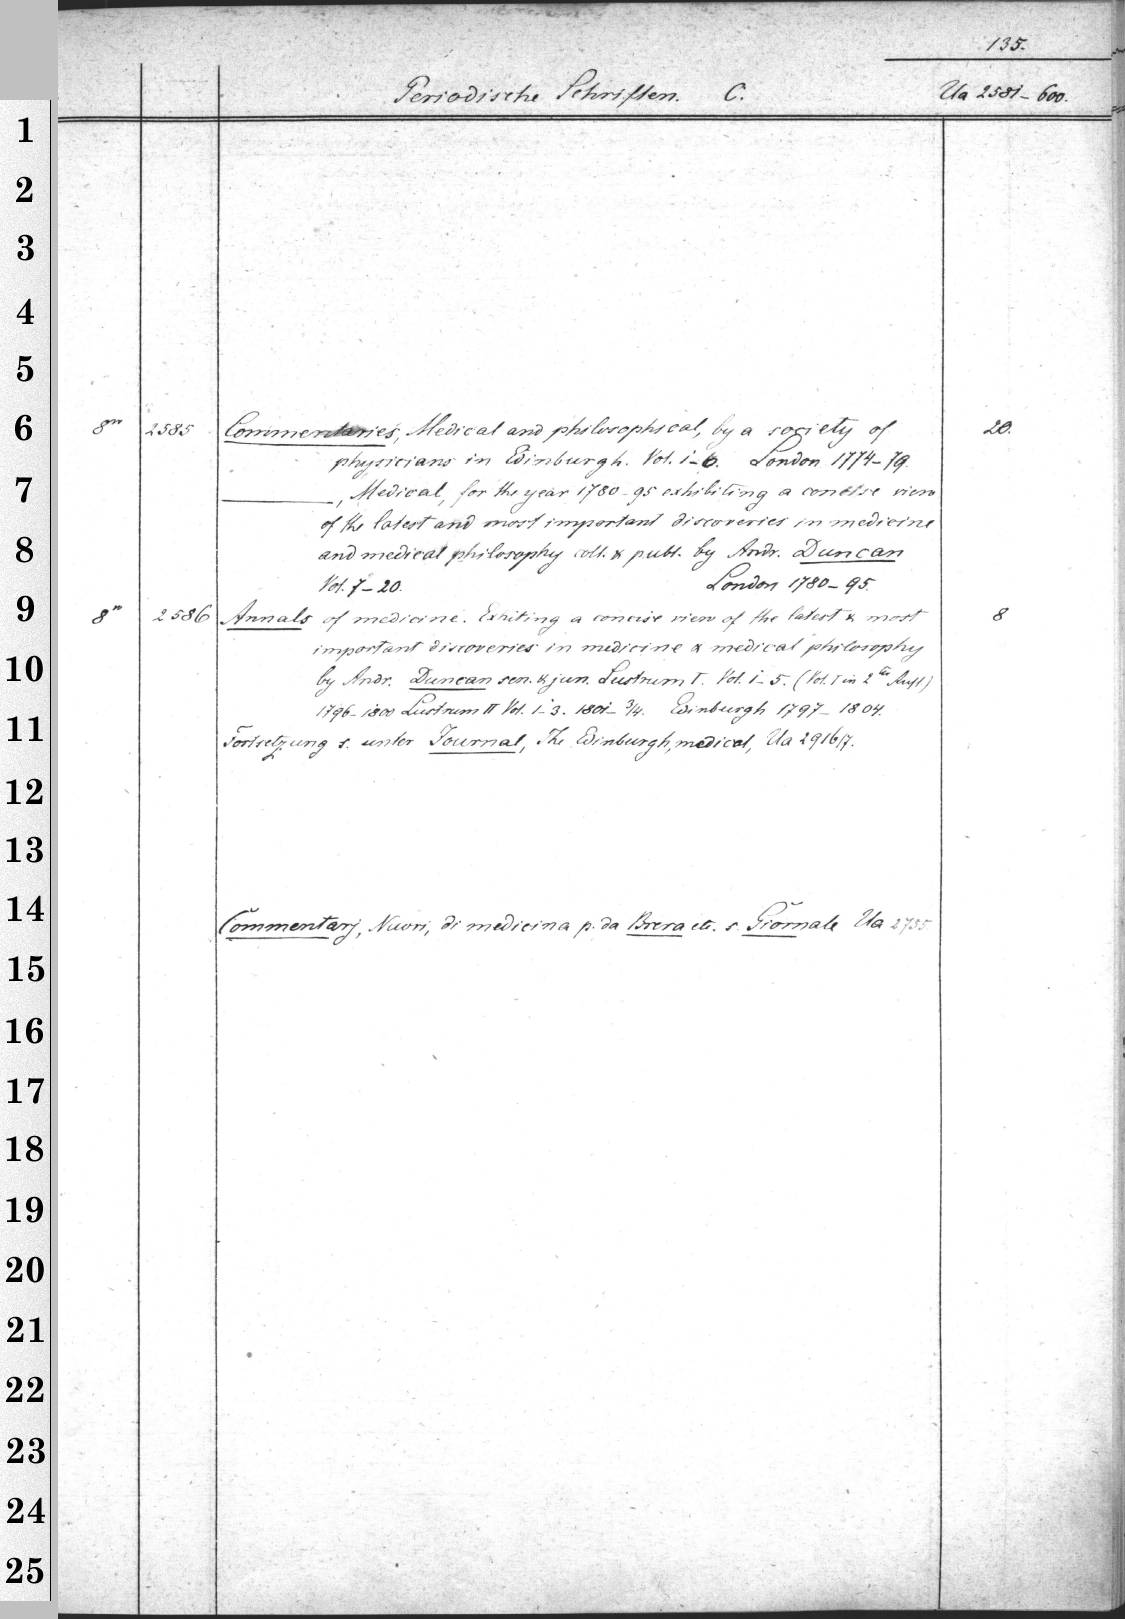 135.
Periodische Schriften. C. Ua 2581-600.
1
2
3
4
5
6
8vo 2585 Commentaries, Medical and philosophical, by a society of 20.
physicians in Edinburgh. Vol. 1-6. London 1774-79.
7
———, Medical, for the year 1780-95 exhibiting a concise view
of the latest and most important discoveries in medicine
8
and medical philosophy coll. & publ. by Andr. Duncan
Vol. 7-20. London 1780-95.
9
8o 2586 Annals of medicine. Exhiting a concise view of the latest & most 8
important discoveries in medicine & medical philosophy
10
by Andr. Duncan sen. & jun. Lustrum I. Vol. 1-5. (Vol. I in 2ter Aufl)
1796-1800 Lustrum II Vol. 1-3. 1801-3/4. Edinburgh 1797-1804.
11
Fortsetzung s. unter Journal, The Edinburgh, medical, Ua 2916/7.
12
13
14
Commentarj, Nuovi, di medicina p. da Brera etc. s. Giornale Ua 2735
15
16
17
18
19
20
21
22
23
24
25